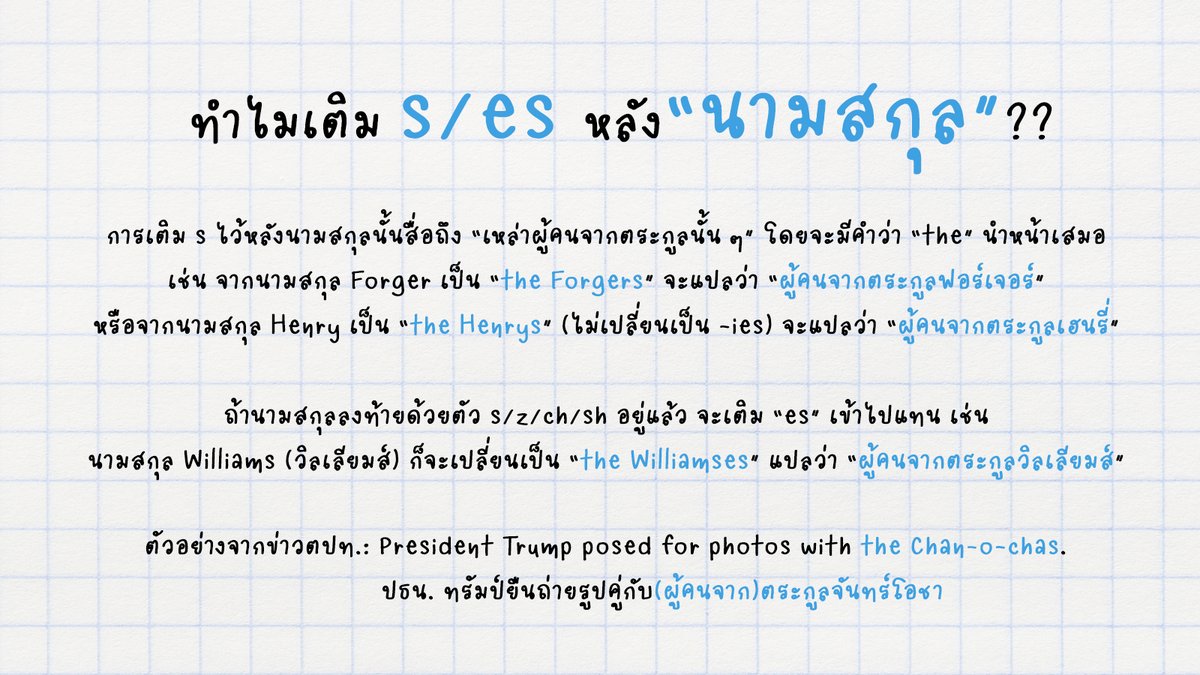 ทำไมเติม s/es หลัง "นามสกุล" ??
การเติม s ไว้หลังนามสกุลนั้นสื่อถึง "เหล่าผู้คนจากตระกูลนั้น ๆ" โดยจะมีคำว่า "the" นำหน้าเสมอ
เช่น จากนามสกุล Forger เป็น "the Forgers" จะแปลว่า "ผู้คนจากตระกูลฟอร์เจอร์"
หรือจากนามสกุล Henry เป็น "the Henrys" (ไม่เปลี่ยนเป็น -ies) จะแปลว่า "ผู้คนจากตระกูลเฮนรี่"
ถ้านามสกุลลงท้ายด้วยตัว s/z/ch/sh อยู่แล้ว จะเติม "es" เข้าไปแทน เช่น
นามสกุล Williams (วิลเลียมส์) ก็จะเปลี่ยนเป็น "the Williamses" แปลว่า "ผู้คนจากตระกูลวิลเลียมส์"
ตัวอย่างจากข่าวตปท.: President Trump posed for photos with the Chan-o-chas.
ปธน. ทรัมป์ยืนถ่ายรูปคู่กับ(ผู้คนจาก)ตระกูลจันทร์โอชา